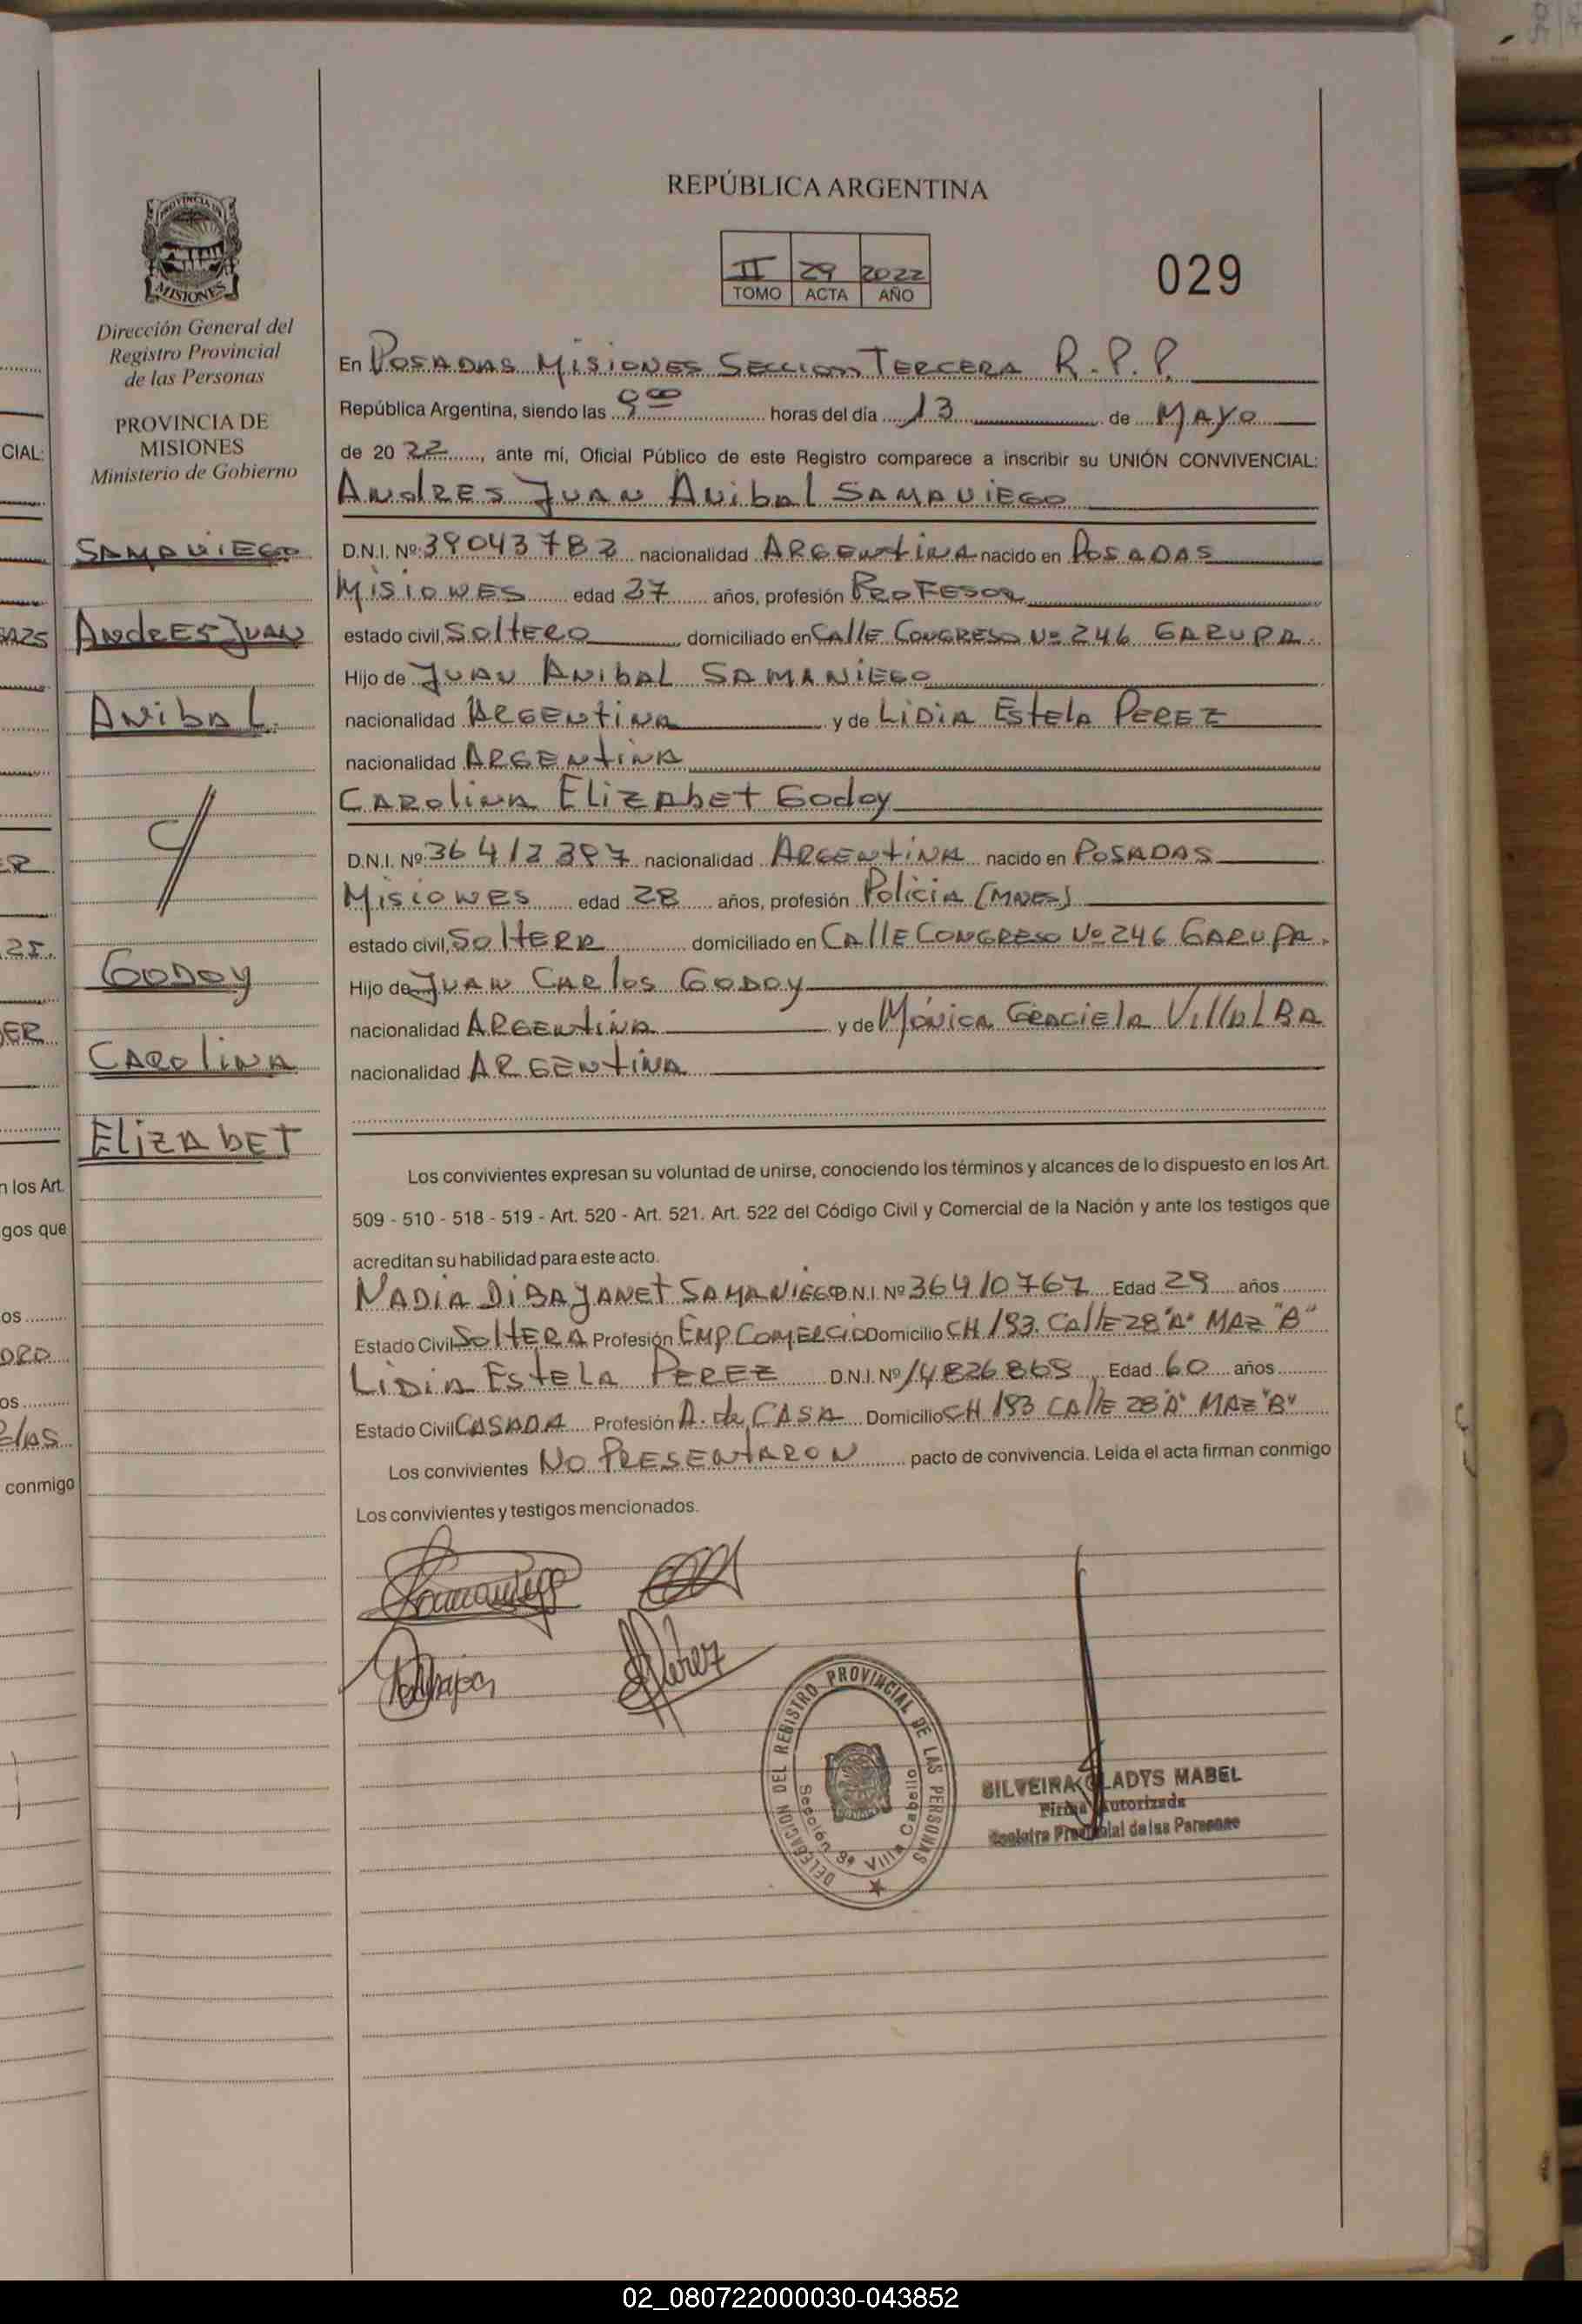 REPÚBLICA ARGENTINA
II 29 2022
TOMO ACTA AÑO
029
PROVINCIA DE
MISIONES
Dirección General del
Registro Provincial
de las Personas
PROVINCIA DE
MISIONES
Ministerio de Gobierno
SAMANIEGO
ANDRES JUAN
ANIBAL
GODOY
CAROLINA
ELIZABET
En POSADAS MISIONES SECCION TERCERA R.P.P.
República Argentina, siendo las horas del día 13 de MAYO
de 2022, ante mí, Oficial Público de este Registro comparece a inscribir su UNIÓN CONVIVENCIAL:
ANDRES JUAN ANIBAL SAMANIEGO
D.N.I. Nº: nacionalidad ARGENTINA nacido en POSADAS
MISIONES edad 27 años, profesión PROFESOR
estado civil, SOLTERO domiciliado en CALLE CONGRESO Nº 246 GARUPA.
Hijo de JUAN ANIBAL SAMANIEGO
nacionalidad ARGENTINA y de LIDIA ESTELA PEREZ
nacionalidad ARGENTINA
CAROLINA ELIZABET GODOY
D.N.I. Nº: nacionalidad ARGENTINA nacido en POSADAS
MISIONES edad 28 años, profesión POLICIA
estado civil, SOLTERA domiciliado en CALLE CONGRESO Nº 246 GARUPA.
Hijo de JUAN CARLOS GODOY
nacionalidad ARGENTINA y de MÓNICA GRACIELA VILLALBA
nacionalidad ARGENTINA
Los convivientes expresan su voluntad de unirse, conociendo los términos y alcances de lo dispuesto en los Art.
509 - 510 - 518 - 519 - Art. 520 - Art. 521. Art. 522 del Código Civil y Comercial de la Nación y ante los testigos que
acreditan su habilidad para este acto.
NADIA YANET SAMANIEGO D.N.I. Nº 36410767 Edad 29 años
Estado Civil SOLTERA Profesión EMP. COMERCIO Domicilio CH 193 CALLE 28 "A" MAZ "B"
LIDIA ESTELA PEREZ D.N.I. Nº Edad 60 años
Estado Civil CASADA Profesión A. de CASA Domicilio CH 193 CALLE 28 "A" MAZ "B"
Los convivientes NO PRESENTARON pacto de convivencia. Leída el acta firman conmigo
Los convivientes y testigos mencionados.
Pérez
DELEGACION DEL REGISTRO PROVINCIAL DE LAS PERSONAS
Sección 3ª Villa Cabello
SILVEIRA GLADYS MABEL
Firma Autorizada
Registro Provincial de las Personas
02_080722000030-043852